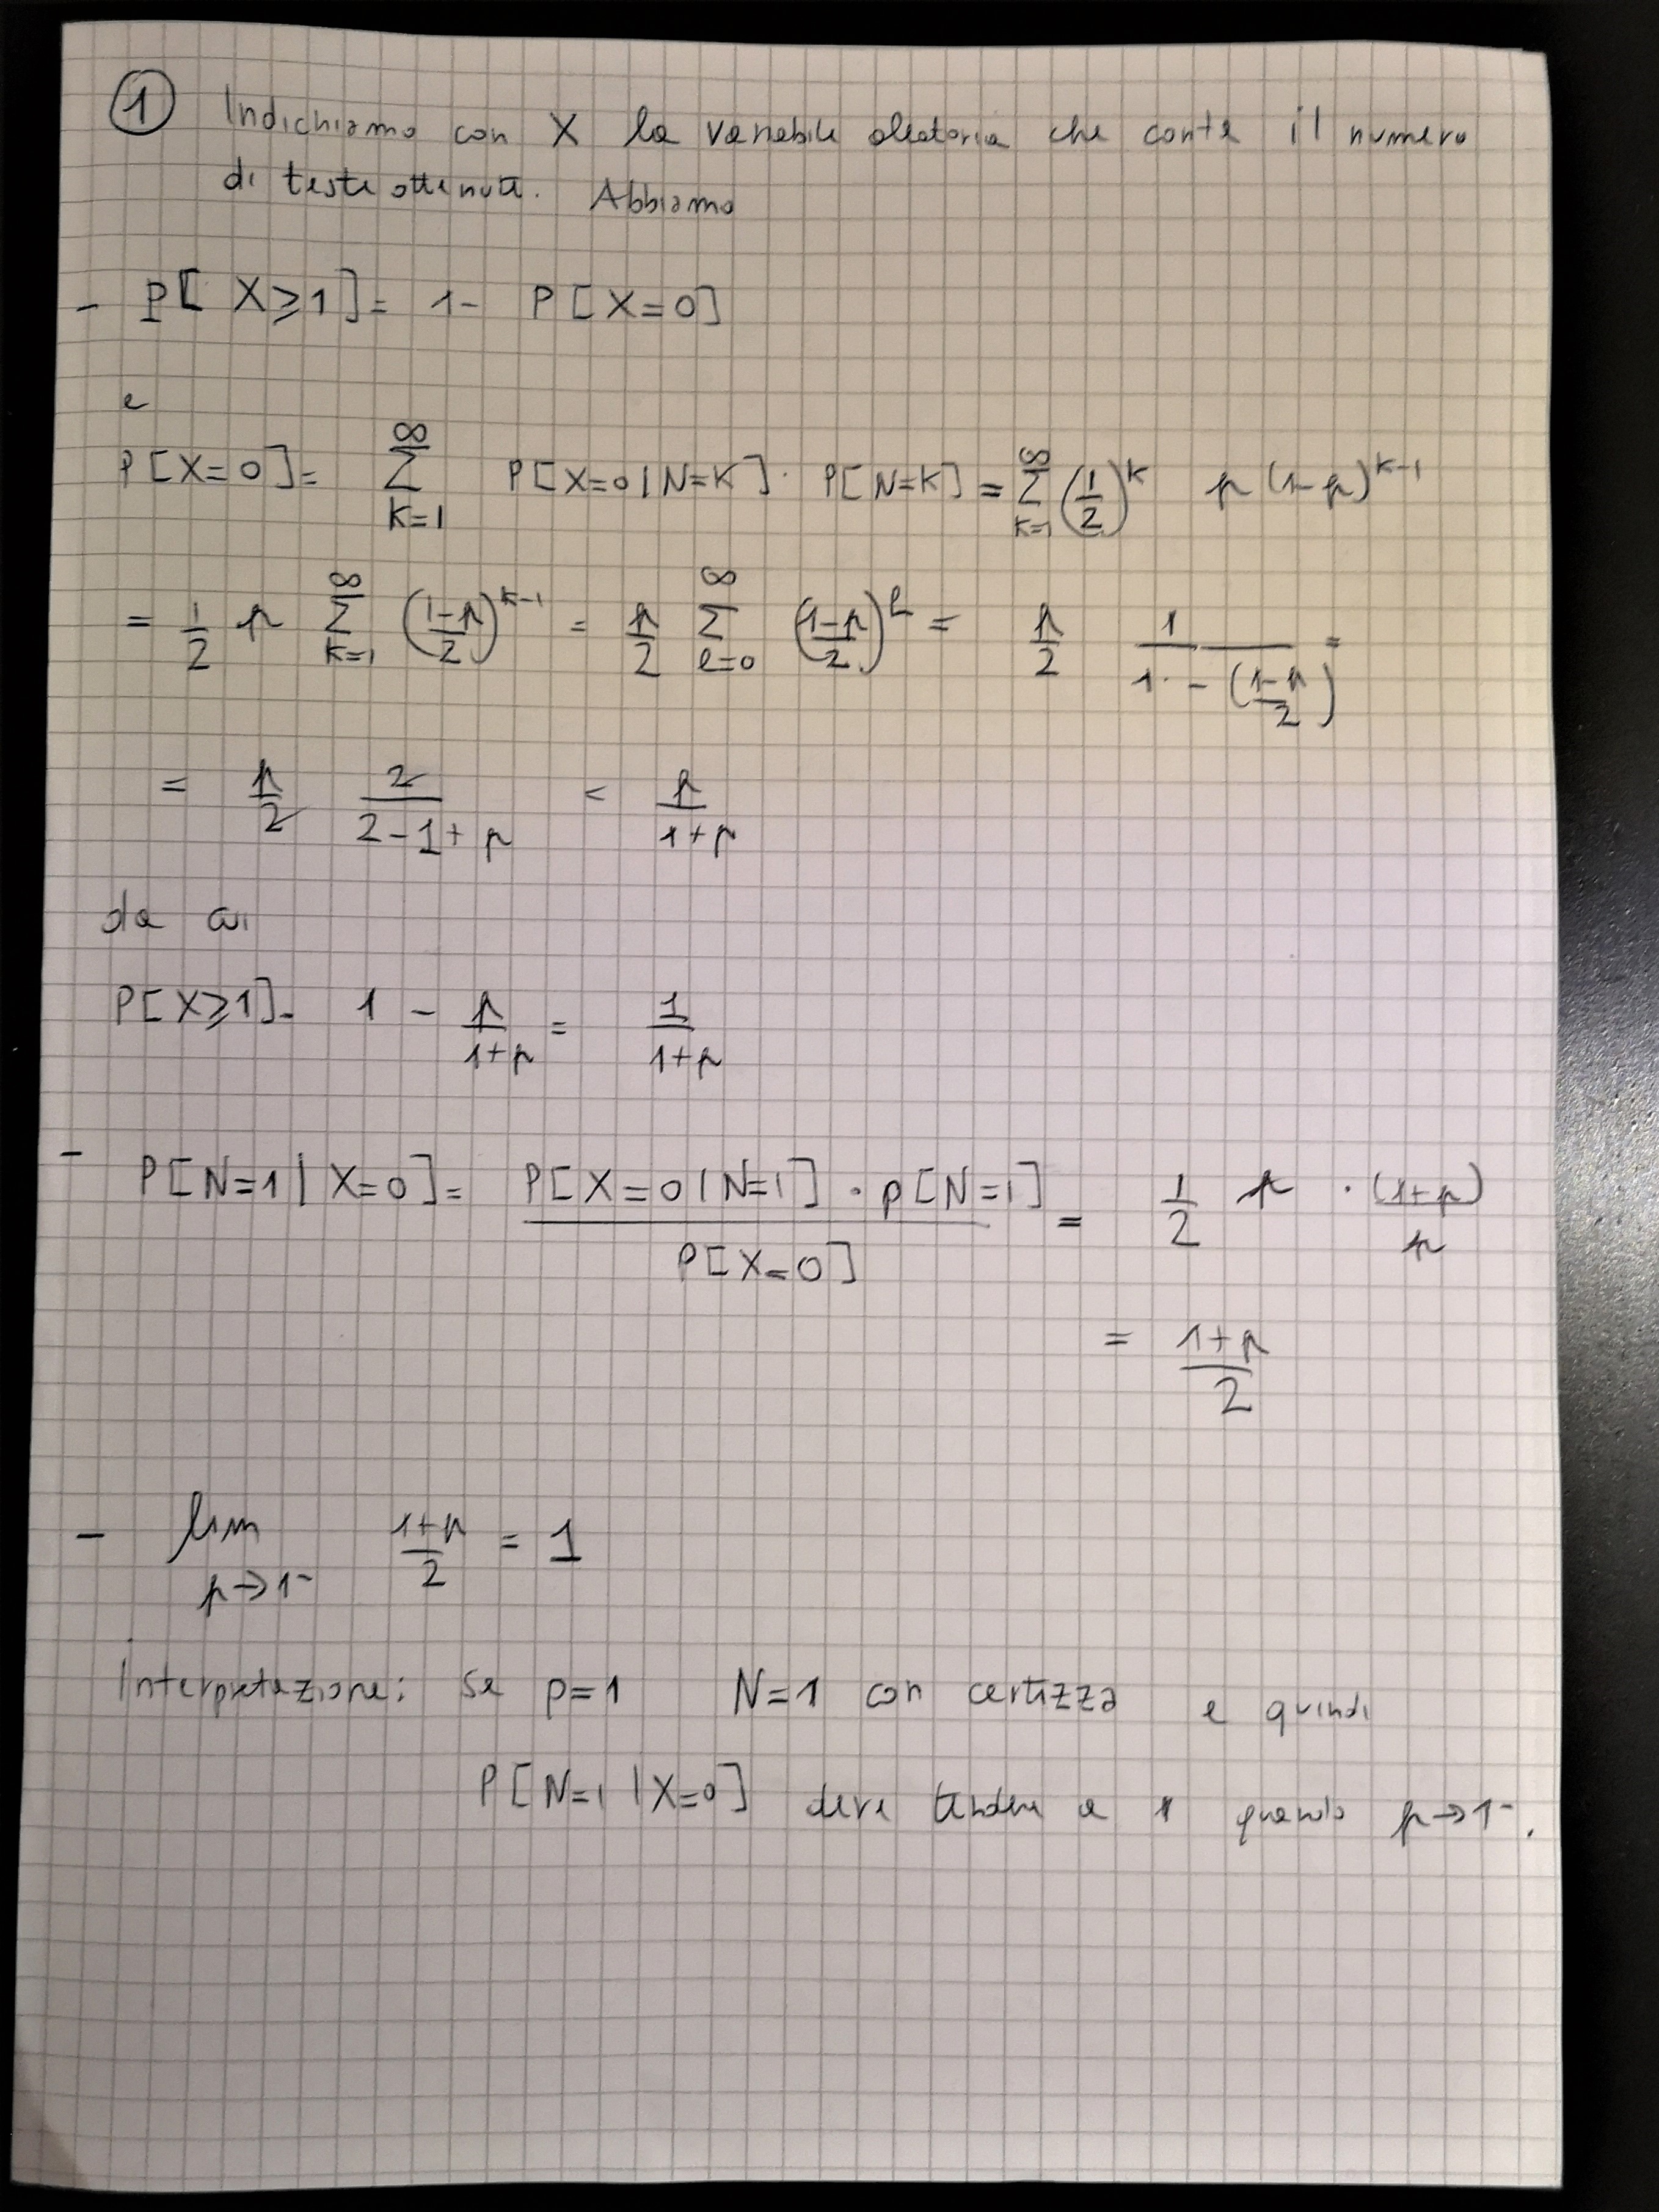 ① Indichiamo con X la variabile aleatoria che conta il numero
di teste ottenute. Abbiamo
- P[X⩾1] = 1 - P[X=0]
e
P[X=0] = ∑_{k=1}^{∞} P[X=0|N=k] · P[N=k] = ∑_{k=1}^{∞} (1/2)^k p(1-p)^{k-1}
= 1/2 p ∑_{k=1}^{∞} ((1-p)/2)^{k-1} = p/2 ∑_{l=0}^{∞} ((1-p)/2)^l = p/2 1/(1 - ((1-p)/2)) =
= p/2 2/(2-1+p) = p/(1+p)
da cui
P[X⩾1] = 1 - p/(1+p) = 1/(1+p)
- P[N=1|X=0] = P[X=0|N=1] · P[N=1] / P[X=0] = 1/2 p · (1+p)/p
= (1+p)/2
- lim_{p→1⁻} (1+p)/2 = 1
Interpretazione: se p=1 N=1 con certezza e quindi
P[N=1|X=0] deve tendere a 1 quando p→1⁻.